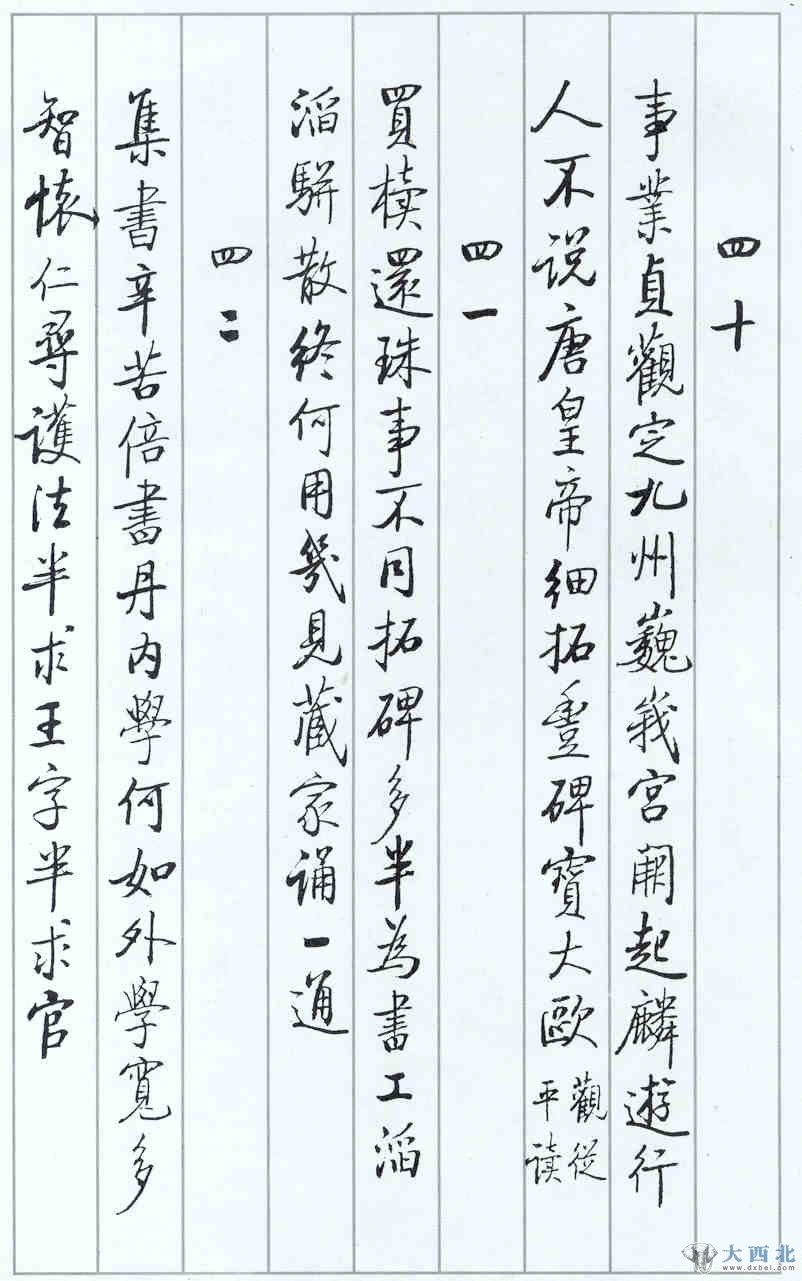 四十
事業貞觀定九州巍峩宮闕起麟遊行
人不说唐皇帝细拓豐碑寶大歐觀從平读
四一
買櫝還珠事不同拓碑多半為書工滔
滔駢散終何用幾見藏家誦一通
四二
集書辛苦倍書丹内學何如外學寬多
智懷仁尋護法半求王字半求官
大西北
www.dxbei.com